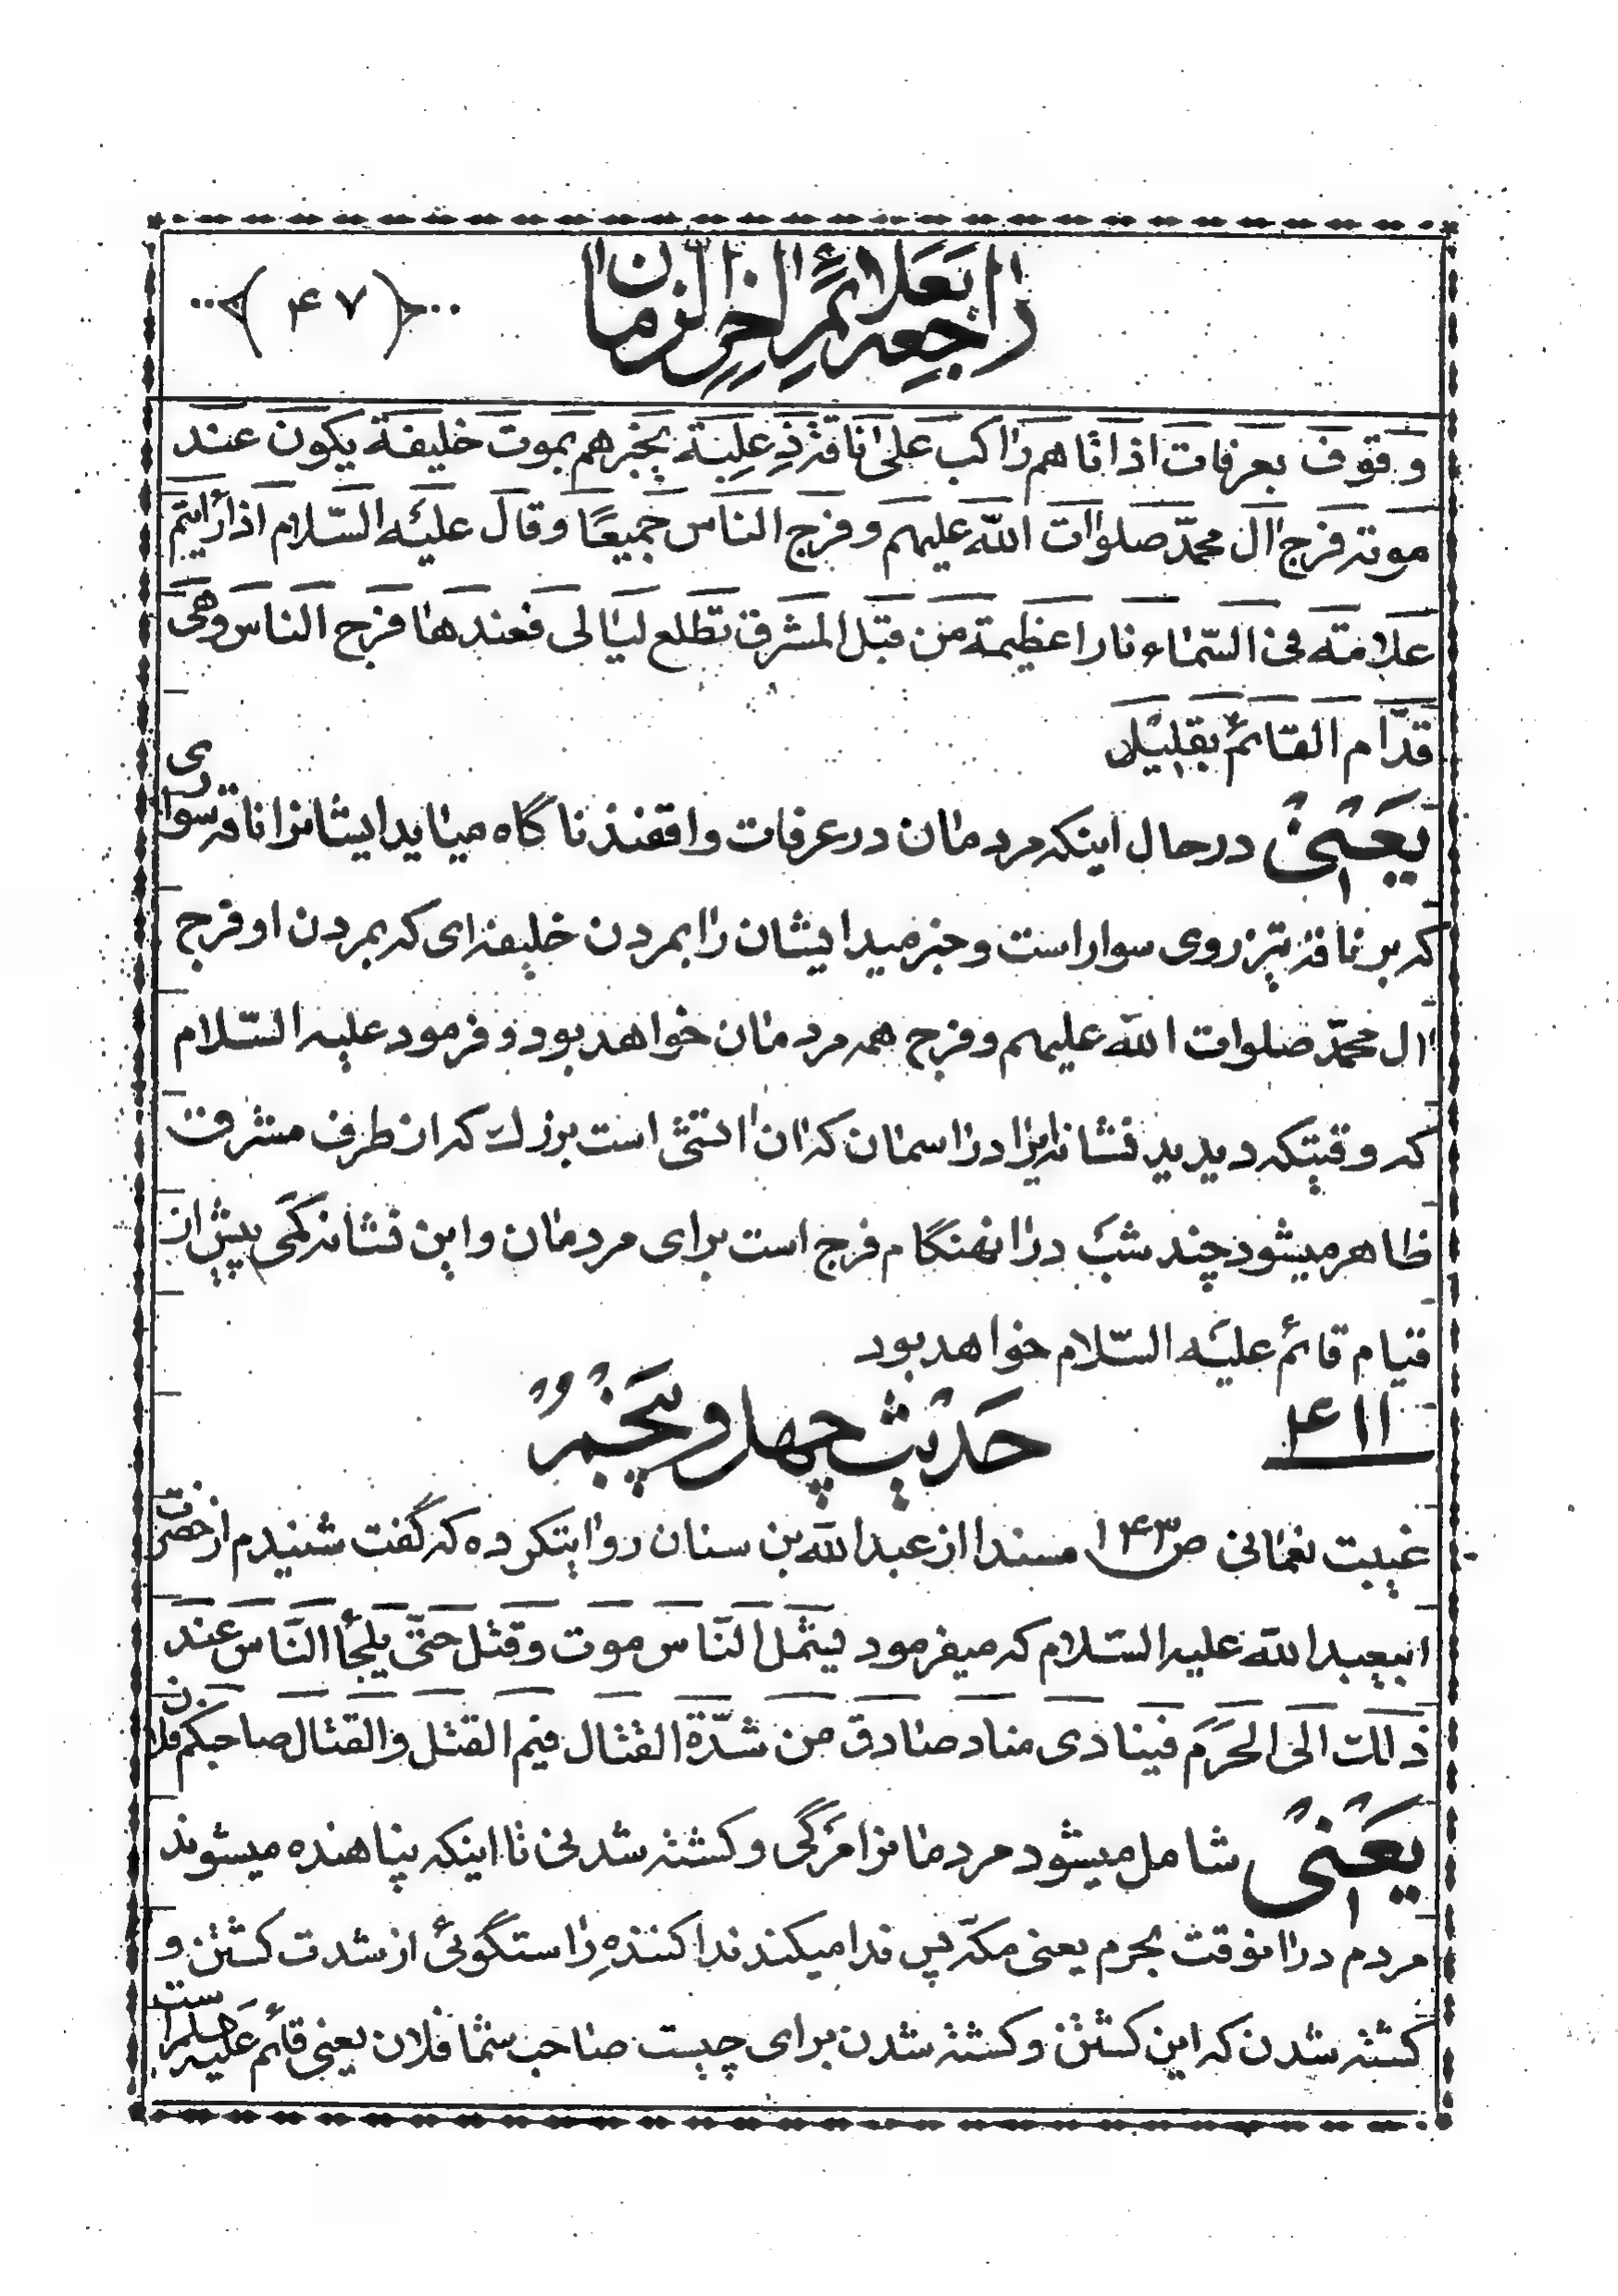 راجعه بعلائم اخر الزمان
﴿ ۴۷ ﴾
وقوف بعرفات اذ اتاهم راكب علی ناقة ذعلبة يخبرهم بموت خليفة يكون عند
موته فرج ال محمّد صلوات اللّه عليهم و فرج الناس جميعًا و قال عليه السّلام اذا رأيتم
علامته فی السّماء نارا عظيمة من قبل المشرق تطلع ليالی فعندها فرج الناس وهی
قدّام القائم بقليل
يعنی در حال اينكه مردمان در عرفات واقفند ناگاه ميايد ايشانرا ناقه سواری
كه بر ناقه تيز روی سوار است و خبر ميدا يشان را بمردن خليفه ای كه بمردن او فرج
ال محمّد صلوات اللّه عليهم و فرج همه مردمان خواهد بود و فرمود عليه السّلام
كه وقتيكه ديديد نشانه ايرا در اسمان كه ان اتشی است بزرك كه از طرف مشرق
ظاهر ميشود چند شب در انهنگام فرج است برای مردمان و اين نشانه كمی پيش از
قيام قائم عليه السّلام خواهد بود
۴۱۱ حديث چهل و پنجم
غيبت نعمانی ص ۱۴۳ مسندا از عبداللّه بن سنان روايتكرده كه گفت شنيدم از حضرت
ابيعبداللّه عليه السّلام كه ميفرمود يشمل النّاس موت و قتل حتّی يلجأ النّاس عند
ذلك الی الحرم فينادی مناد صادق من شدّة القتال فيم القتل و القتال صاحبكم فلان
يعنی شامل ميشود مردمانرا مرگی و كشته شدنی تا اينكه پناهنده ميشوند
مردم در انوقت بحرم يعنی مكّه پس ندا ميكند ندا كننده راستگوئی از شدت كشتن و
كشته شدن كه اين كشتن و كشته شدن برای چيست صاحب شما فلان يعنی قائم عليه